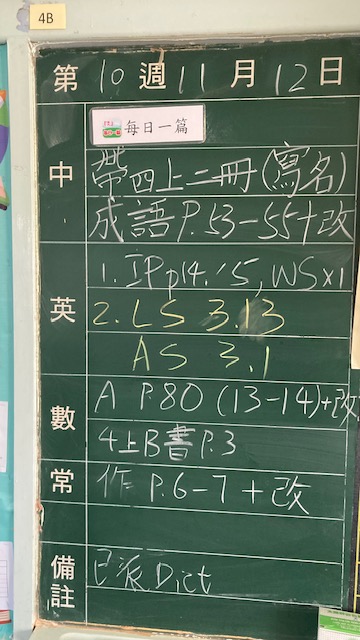 4B
第10週11月12日
每日一篇
中 帶四上二冊(寫名)
成語 P.53-55+改
英 1. IP p14.15, WS x1
2. LS 3.13
AS 3.1
數 A P.80 (13-14)+改
4上B書 P.3
常 作 P.6-7+改
備註 已派 Dict